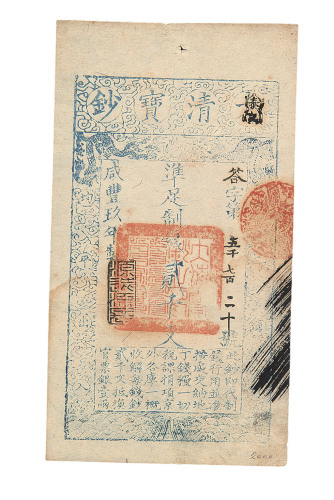 清寶鈔
荅字第五千七百二十號
準足制錢貳千文
咸豐玖年製
均平出入
此鈔即代制
錢行用並准
按成交納地
丁錢糧一切
稅課捐項京
外各庫一概
收解每錢鈔
貳千文抵換
官票銀壹兩
2000